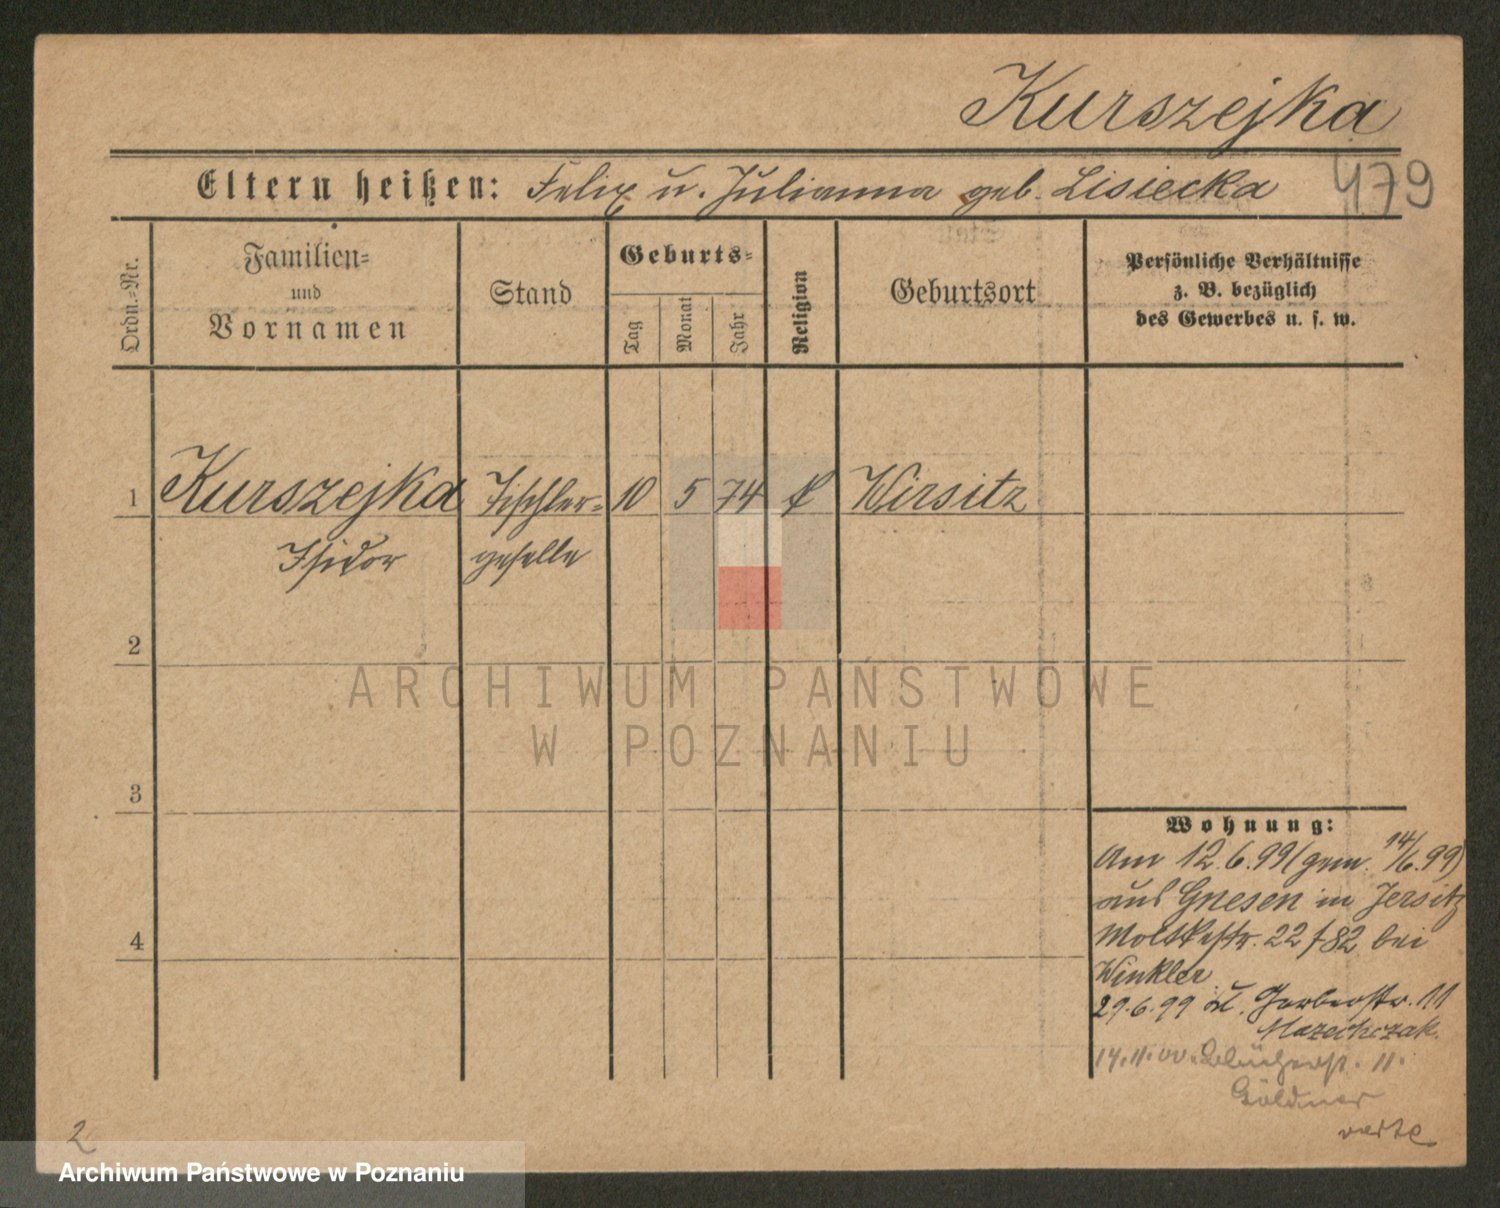 Kurszejka
Eltern heißen: Felix u. Julianna geb. Lisiecka
479
Ordn.-Nr.
Familien-
und
Vornamen
Stand
Geburts-
Tag
Monat
Jahr
Religion
Geburtsort
Persönliche Verhältnisse
z. B. bezüglich
des Gewerbes u. s. w.
1 Kurszejka Tischler- 10 5 74 k Wirsitz
Isidor geselle
2
3
4
ARCHIWUM PAŃSTWOWE
W POZNANIU
Wohnung:
Am 12.6.99 (gem. 14/6.99)
aus Gnesen in Jersitz
Moltkestr. 22/82 bei
Winkler
29.6.99 Gerberstr. 11
14.11.00. Blücherst. 11.
Göldner
verte
2
Archiwum Państwowe w Poznaniu